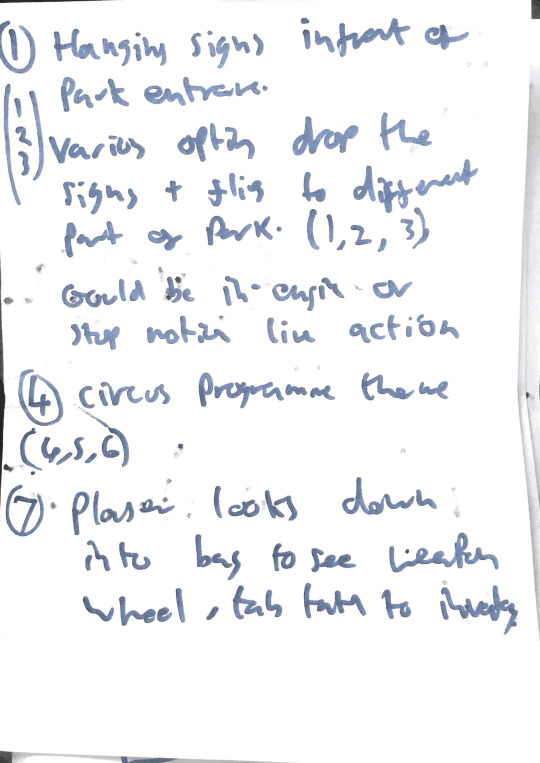 ① Hanging signs infront of
Park entrance.
(1 2 3) Various option drop the
signs + flig to different
part of Park. (1, 2, 3)
Could be in-engin or
stop motion live action
④ Circus Programme theme
(4,5,6)
⑦ Player looks down
into bag to see weapon
wheel, tab to inventory